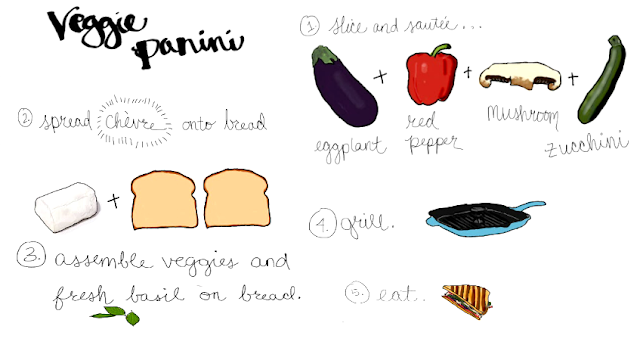 Veggie
panini
① slice and sautée...
+ + +
eggplant
red
pepper
mushroom
zucchini
② spread chèvre onto bread
+
③. assemble veggies and
fresh basil on bread.
④. grill.
⑤. eat.